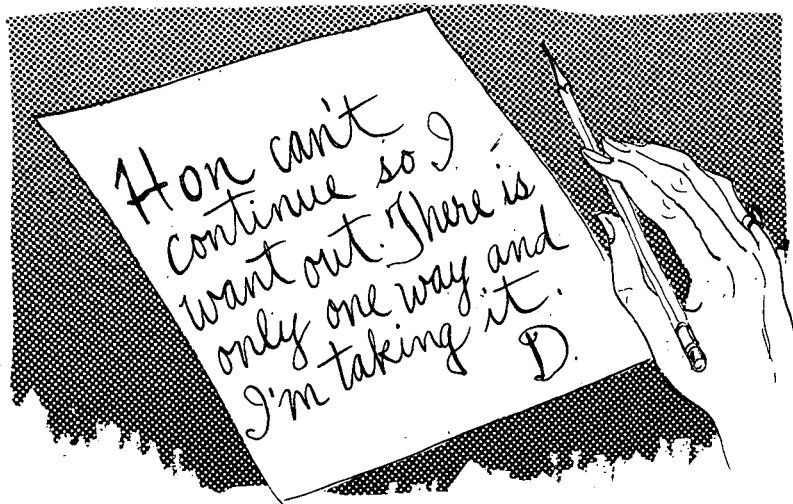 Hon can't
continue so I
want out. There is
only one way and
I'm taking it.
D.